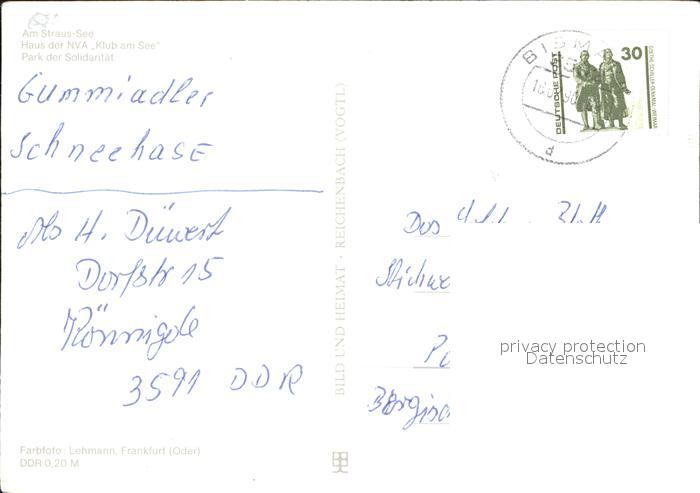 Am Straus-See
Haus der NVA „Klub am See"
Park der Solidarität
Gummiadler
Schneehase
Abs H. Düwert
Dorfstr 15
Könnigde
3591 DDR
Farbfoto: Lehmann, Frankfurt (Oder)
DDR 0,20 M
BILD UND HEIMAT · REICHENBACH (VOGTL)
BISMA
30
DEUTSCHE POST
GOETHE-SCHILLER-DENKMAL · WEIMAR
Das
Stichwo
privacy protection
Datenschutz